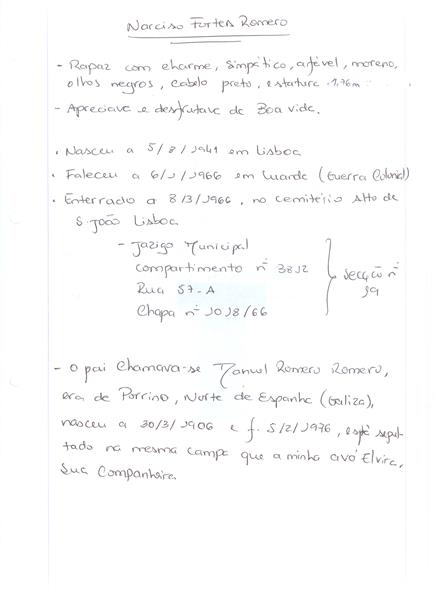 Narciso Fortes Romero
- Rapaz com charme, simpático, afével, moreno,
olhos negros, cabelo preto, estatura 1,76m
- Apreciava e desfrutava de Boa vida.
. Nasceu a 5/8/1941 em Lisboa
. Faleceu a 6/1/1966 em Luanda (Guerra Colonial)
. Enterrado a 8/3/1966, no cemitério Alto de
S. João Lisboa
- Jazigo Municipal
compartimento nº 3812
Rua 57-A
Chapa nº 1018/66
secção nº
19
- O pai chamava-se Manuel Romero Romero,
era de Porrino, Norte de Espanha (Galiza),
nasceu a 30/3/1906 e f. 5/2/1976, está sepul-
tado na mesma campa que a minha avó Elvira,
sua companheira.